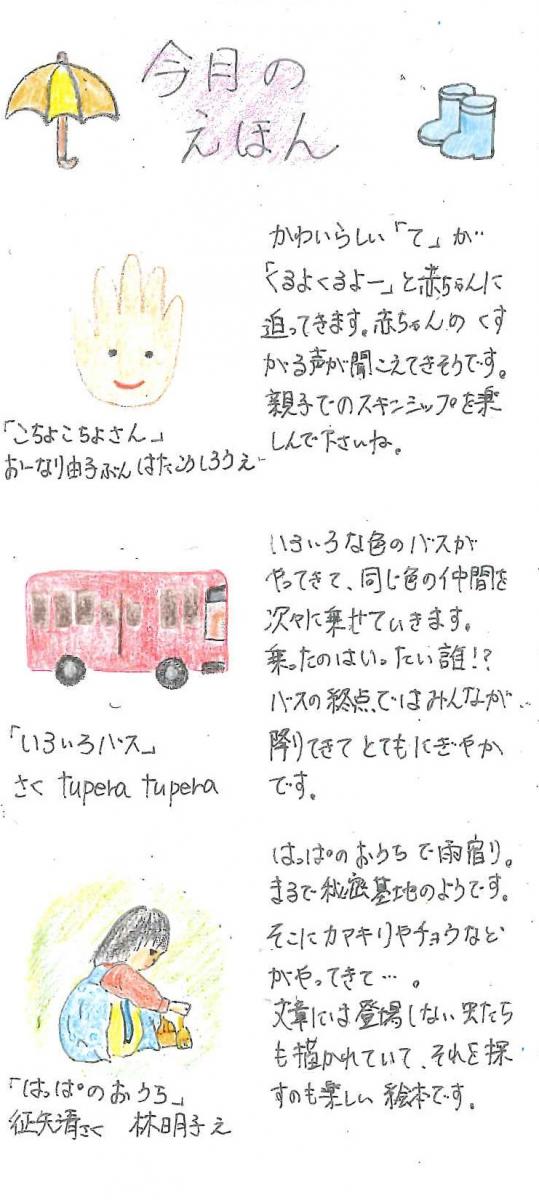 今月の
えほん
かわいらしい「て」が
「くるよくるよー」と赤ちゃんに
迫ってきます。赤ちゃんのくす
がる声が聞こえてきそうです。
親子でのスキンシップを楽
しんで下さいね。
「こちょこちょさん」
おーなり由子ぶん はたこうしろうえ
いろいろな色のバスが
やってきて、同じ色の仲間を
次々に乗せていきます。
乗ったのはいったい誰!?
バスの終点ではみんなが
降りてきてとてもにぎやか
です。
「いろいろバス」
さく tupera tupera
はっぱのおうちで雨宿り。
まるで秘密基地のようです。
そこにカマキリやチョウなど
がやってきて…。
文章には登場しない虫たち
も描かれていて、それを探
すのも楽しい絵本です。
「はっぱのおうち」
征矢清さく 林明子え